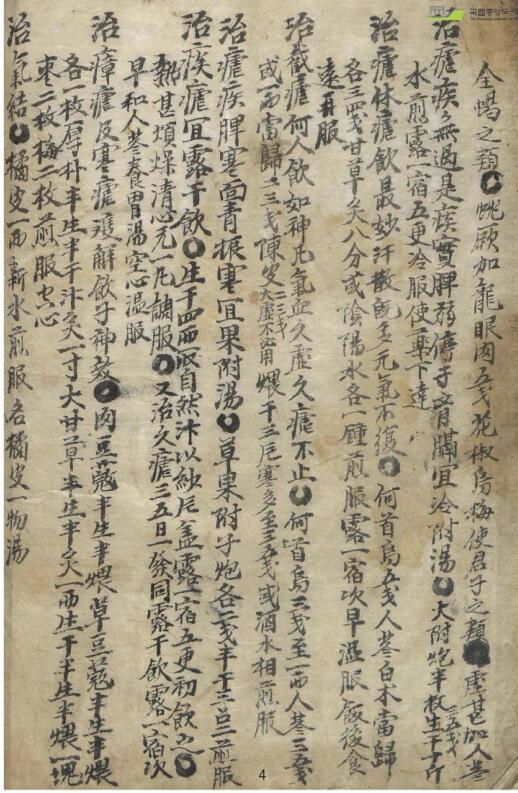 全蝎之類○恍厥加龍眼肉五戔花椒烏梅使君子之類●虛甚加人參三五戔
治瘧疾無過是疾實脾弱痞于膏膈宜冷附湯○大附炮半枚生干十斤
水煎露一宿五更冷服使藥下達
治瘧休瘧飲最妙汗散旣多元氣不復○何首烏五戔人參白朮當歸
各三四戔甘草灸八分或陰陽水各一鍾煎服露一宿次早溫服飯後食
遠再服
治截瘧何人飲如神凡氣血久虛久瘧不止○何首烏三戔至一兩人參三五戔
或一兩當歸二三戔陳皮二三戔大虛不必用煨干三片寒多至三五戔或酒水相煎服
治瘧疾脾寒面靑振寒宜果附湯○草果附子炮各二戔半干三召二煎服
治痎瘧宜露干飲○生干四兩取自然汁以紗片盖露一宿五更初飲之○
熱甚煩燥淸心元一丸調服○又治久瘧三五日一發同露干飲露一宿次
早和人參養胃湯空心溫服
治瘴瘧及寒瘧雙解飮子神效●肉豆蔲半生半煨草豆蔲半生半煨
各一枚厚朴半生半干汁灸一寸大甘草半生半灸一兩生干半生半煨一塊
枣二枚梅二枚煎服空心
治氣結○橘皮一兩新水煎服名橘皮一物湯
4